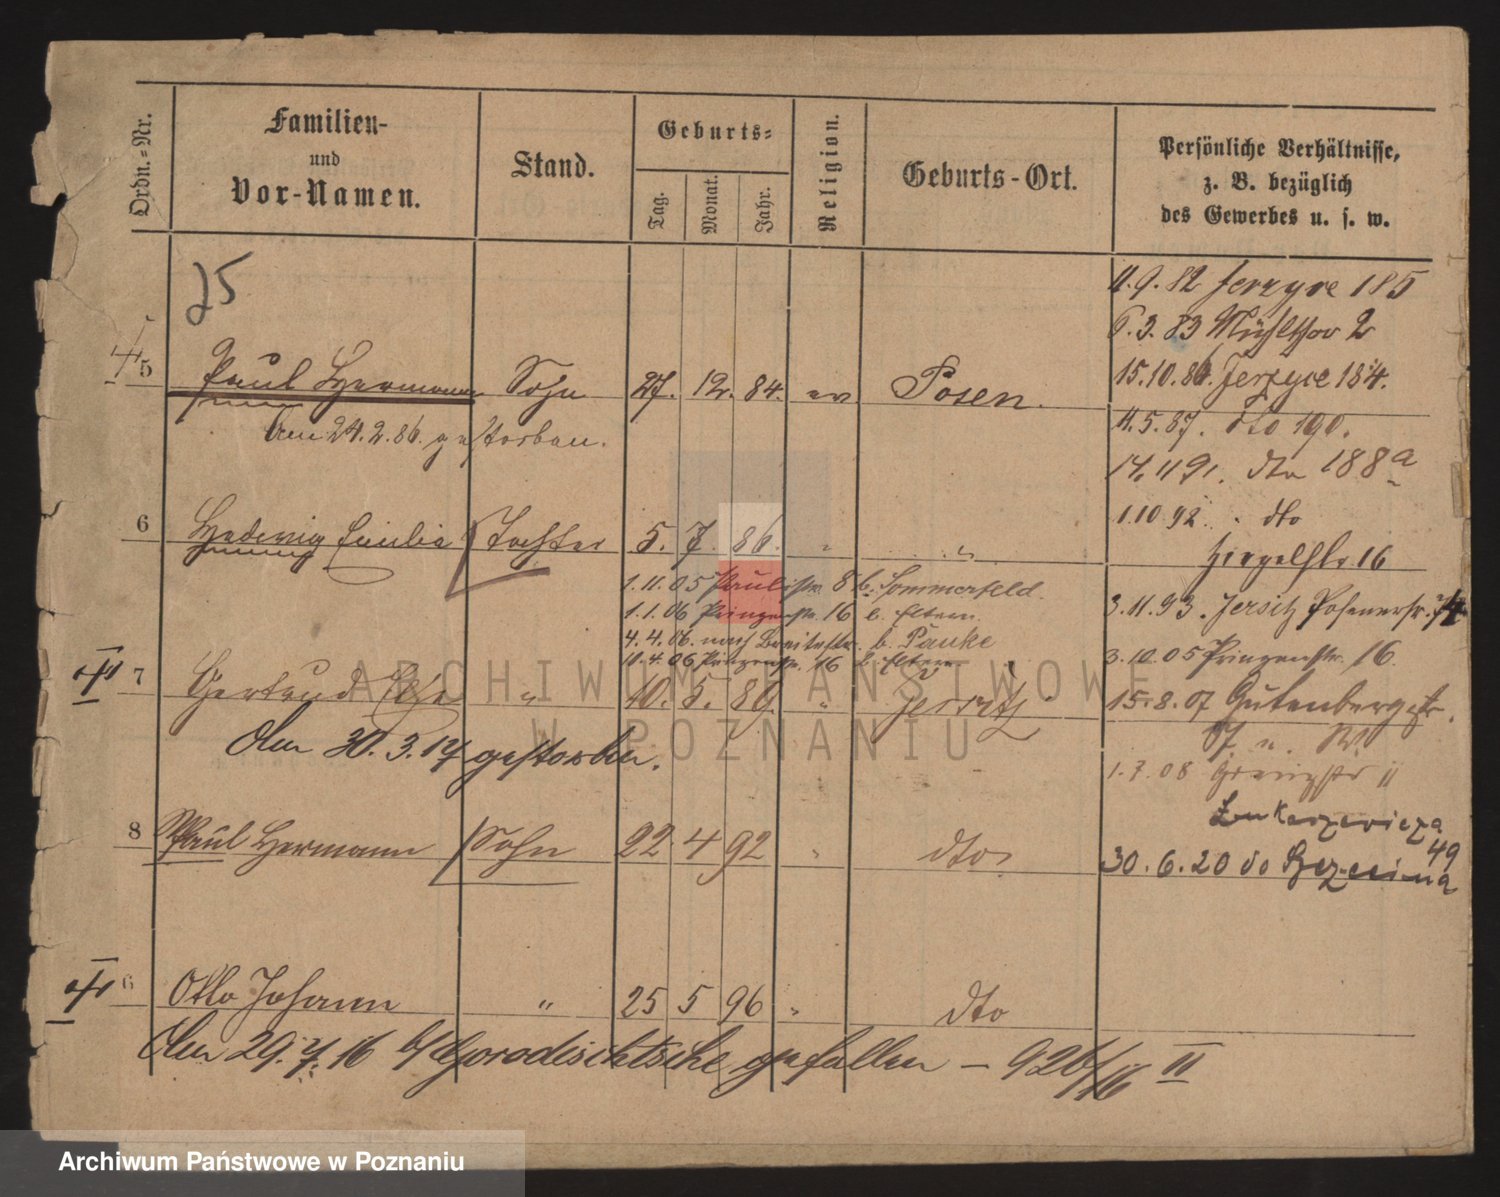 Ordn.-Nr.
Familien-
und
Vor-Namen.
Stand.
Geburts-
Tag.
Monat.
Jahr.
Religion.
Geburts-Ort.
Persönliche Verhältnisse,
z. B. bezüglich
des Gewerbes u. s. w.
25
11.9.82 Jerzyce 185
6.3.83 Mühlthor 2
5 Paul Hermann Sohn 27. 12. 84. ev Posen.
15.10.86. Jerzyce 184.
am 24.2.86. gestorben.
11.5.87. dto 190.
14.11 91. dto 188a
1.10 92. dto
6 Hedwig Emilie Tochter 5. 7. 86. " "
Ziegelstr 16
1.11.05 Paulistr. 8 b. Sommerfeld.
1.1.06 Prinzenstr. 16 b. Eltern.
3.11.93. Jersitz Posenerstr.
4.4.06. nach Breitestr. b. Pauke
11.4.06 Prinzenstr. 16 b. Eltern
3.10.05 Prinzenstr. 16
7 Gertrud " 10. 5. 89. " Jersitz
15.8.07 Gutenbergstr.
Den 30.3.14 gestorben.
1.7.08 11
8 Paul Hermann Sohn 22 4 92 " dto
Łukaszewicza
49
30.6.20 do
6 Otto Johann " 25 5 96 " dto
Den 29.7.16 b/Gorodischtsche gefallen – 926/16 II
ARCHIWUM PAŃSTWOWE
W POZNANIU
Archiwum Państwowe w Poznaniu